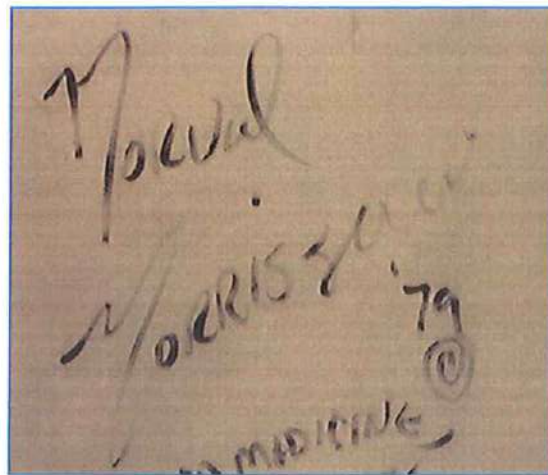 Norval
Morrisseau
'79
©
MADICINE